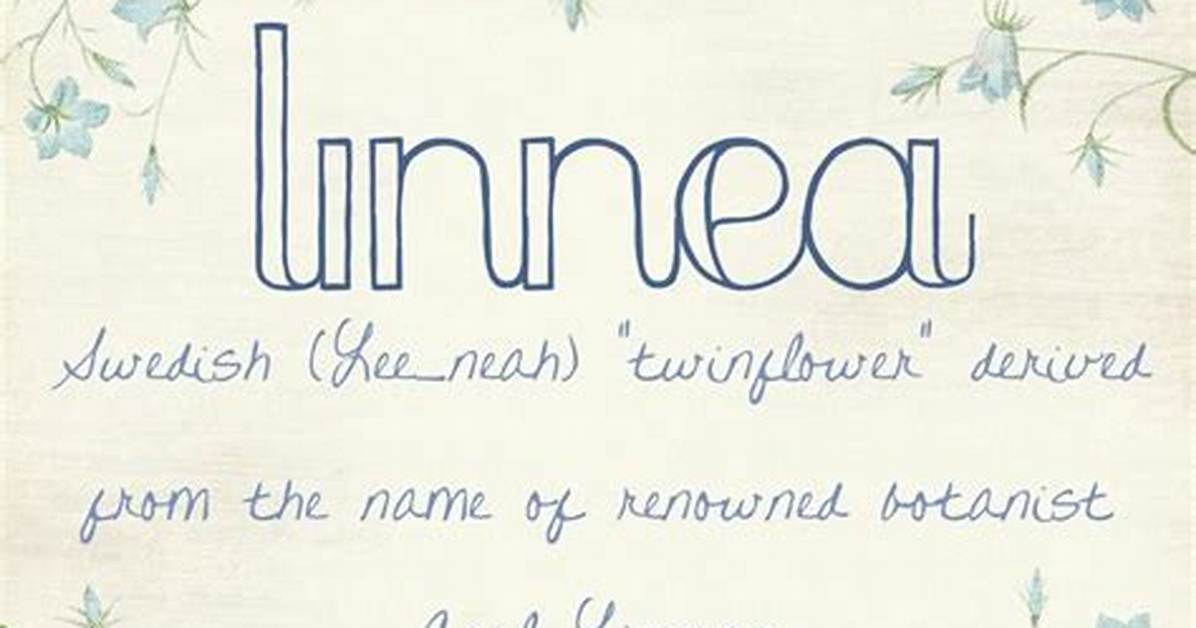 linnea
Swedish (Lee_neah) "twinflower" derived
from the name of renowned botanist